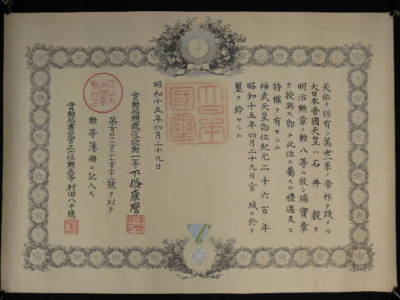 天佑ヲ保有シ萬世一系ノ帝祚ヲ踐メル
大日本帝國天皇ハ石井毅ヲ
明治勲章ノ勲八等ニ敍シ瑞寶章
ヲ授與ス即チ此位ニ屬スル禮遇及ヒ
特權ヲ有セシム
神武天皇即位紀元二千六百年
昭和十五年四月二十九日宮城ニ於テ
璽ヲ鈐セシム
大日本
國璽
昭和十五年四月二十九日
賞勲局總裁從三位勲一等下條康麿
号ヲ以テ
勲等簿冊ニ記入ス
賞勲局書記官正六位勲六等村田八千穂